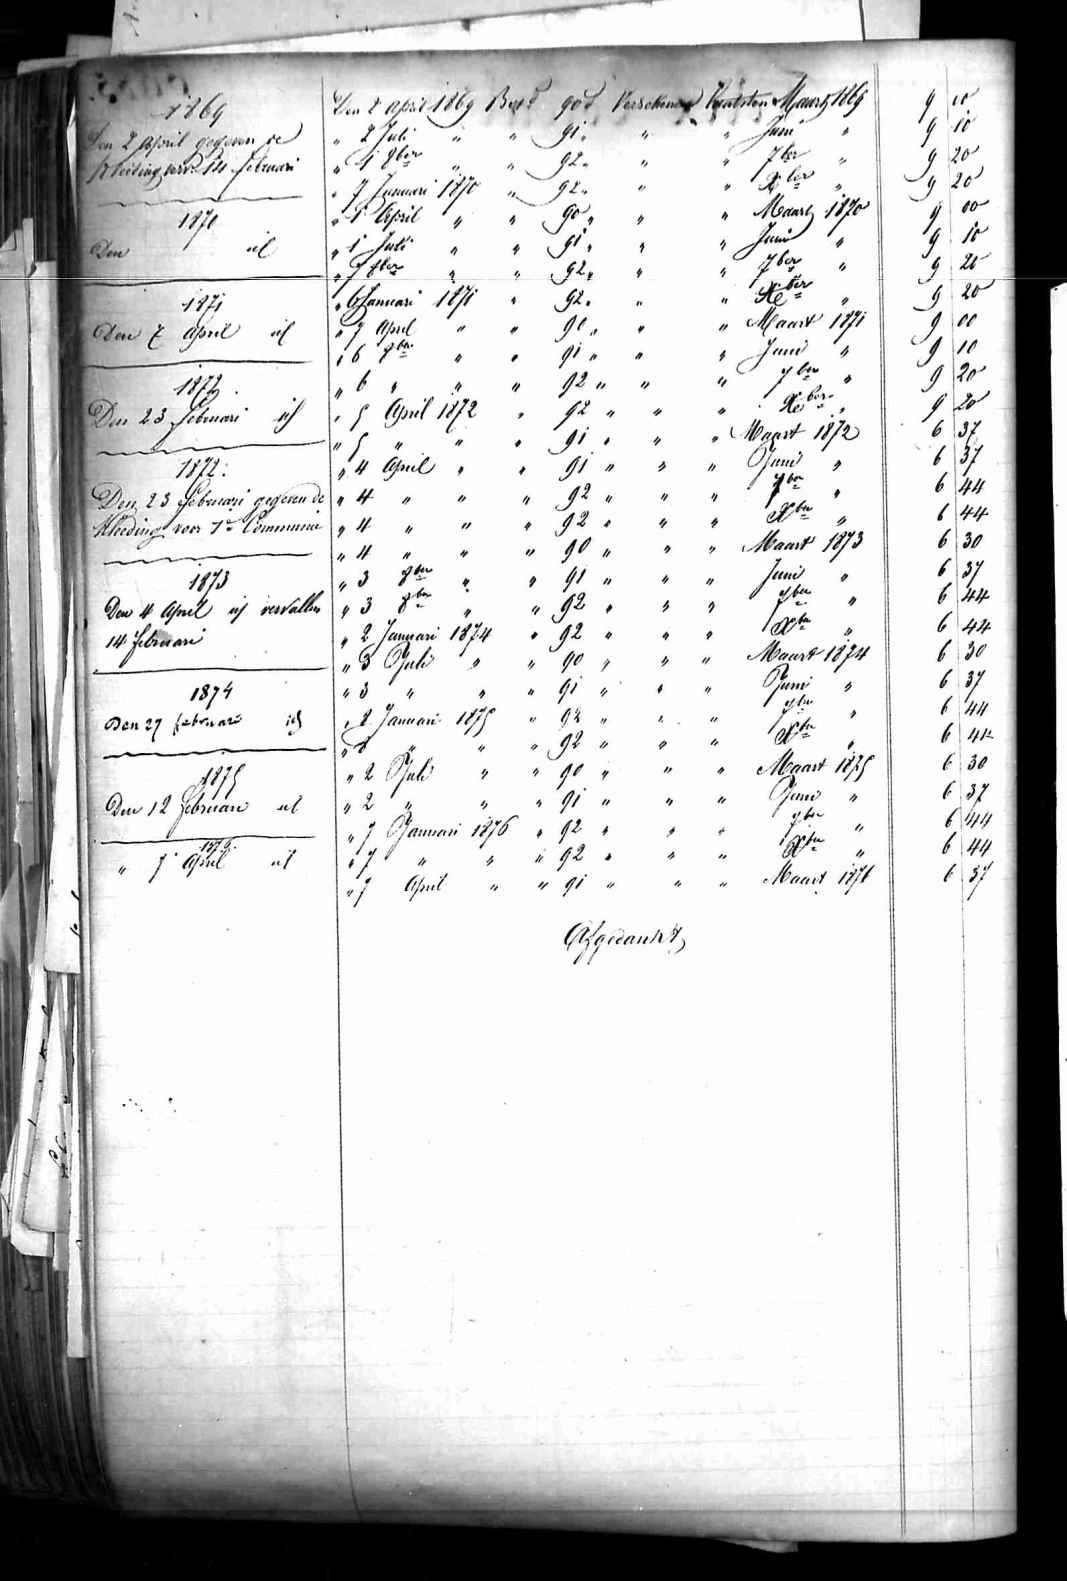 1869
Den 2 April gegeven de
kleeding verv. 14 februari
1870
Den id
1871
Den 7 April id
1872
Den 23 februari id
1872.
Den 23 februari gegeven de
kleeding voor 1e Communie
1873
Den 4 April id vervallen
14 februari
1874
Den 27 februari id
1875
Den 12 februari id
1876.
" 7 April id
Den 2 April 1869 Bet 90 d Verschenen laatsten Maart 1869 9 00
" 2 Juli " " 91 " " " Juni " 9 10
" 1 8ber " " 92 " " " 7ber " 9 20
" 7 Januari 1870 " 92 " " " Xber " 9 20
" 1 April " " 90 " " " Maart 1870 9 00
" 1 Juli " " 91 " " " Juni " 9 10
" 7 8ber " " 92 " " " 7ber " 9 20
" 6 Januari 1871 " 92 " " " Xber " 9 20
" 7 April " " 90 " " " Maart 1871 9 00
" 6 8ber " " 91 " " " Juni " 9 10
" 6 " " " 92 " " " 7ber " 9 20
" 5 April 1872 " 92 " " " Xber " 9 20
" 5 " " " 91 " " " Maart 1872 6 37
" 4 April " " 91 " " " Juni " 6 37
" 4 " " " 92 " " " 7ber " 6 44
" 4 " " " 92 " " " Xber " 6 44
" 4 " " " 90 " " " Maart 1873 6 30
" 3 8ber " " 91 " " " Juni " 6 37
" 3 8ber " " 92 " " " 7ber " 6 44
" 2 Januari 1874 " 92 " " " Xber " 6 44
" 3 Juli " " 90 " " " Maart 1874 6 30
" 3 " " " 91 " " " Juni " 6 37
" 2 Januari 1875 " 92 " " " 7ber " 6 44
" " " " 92 " " " Xber " 6 44
" 2 Juli " " 90 " " " Maart 1875 6 30
" 2 " " " 91 " " " Juni " 6 37
" 7 Januari 1876 " 92 " " " 7ber " 6 44
" 7 " " " 92 " " " Xber " 6 44
" 7 April " " 91 " " " Maart 1876 6 37
Afgedankt